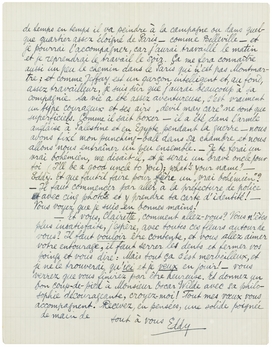 de temps en temps il va peindre à la campagne ou dans quel-
que quartier assez éloigné de Paris - comme Belleville - et
je pourrai l'accompagner, car j'aurai travaillé le matin
et je reprendrai le travail le soir. Ça me fera connaître
aussi un peu le chemin dans le Paris qui n'est pas Montmar-
tre; et comme Jeffay est un garçon intelligent et au fond,
assez travailleur, je suis sûr que j'aurai beaucoup à sa
compagnie. Sa vie a été assez aventureuse, c'est vraiment
un type courageux et ses airs "devil may care" ne sont que
superficiels. Comme il sait boxer - il a été dans l'armée
anglaise à Palestine et en Egypte pendant la guerre - nous
avons fixé mon punching-ball dans sa chambre et nous
allons nous entraîner un peu ensemble. - Je te ferai un
vrai bohémien, me disait-il, et je serai un brave oncle pour
toi. I'll be a good uncle to you, what's your name?
Eddy. Et que faut-il faire pour être un "vrai bohémien"?
- Il faut commencer par aller à la préfecture de police
avec cinq photos et y prendre sa carte d'identité!
Vous voyez que je suis en bonnes mains!
- Et vous, Clairette, comment allez-vous? Vous n'êtes
plus insatisfaite, j'espère, avec toutes ces fleurs autour de
vous? Il faut vouloir être contente, et aussi pour
votre entourage, il faut serrer les dents et fermer vos
poings et vous dire: Mais tout ça c'est merveilleux, et
je ne le trouverai qu'ici et je veux en jouir! vous
verrez que vous finirez par être heureuse. Et donnez un
bon coup-de-pied à Monsieur Oscar Wilde avec sa phi-
losophie décourageante, croyez-moi! Tous mes vœux vous
accompagnent. Recevez, en pensées, une solide poignée
de main de tout à vous Eddy